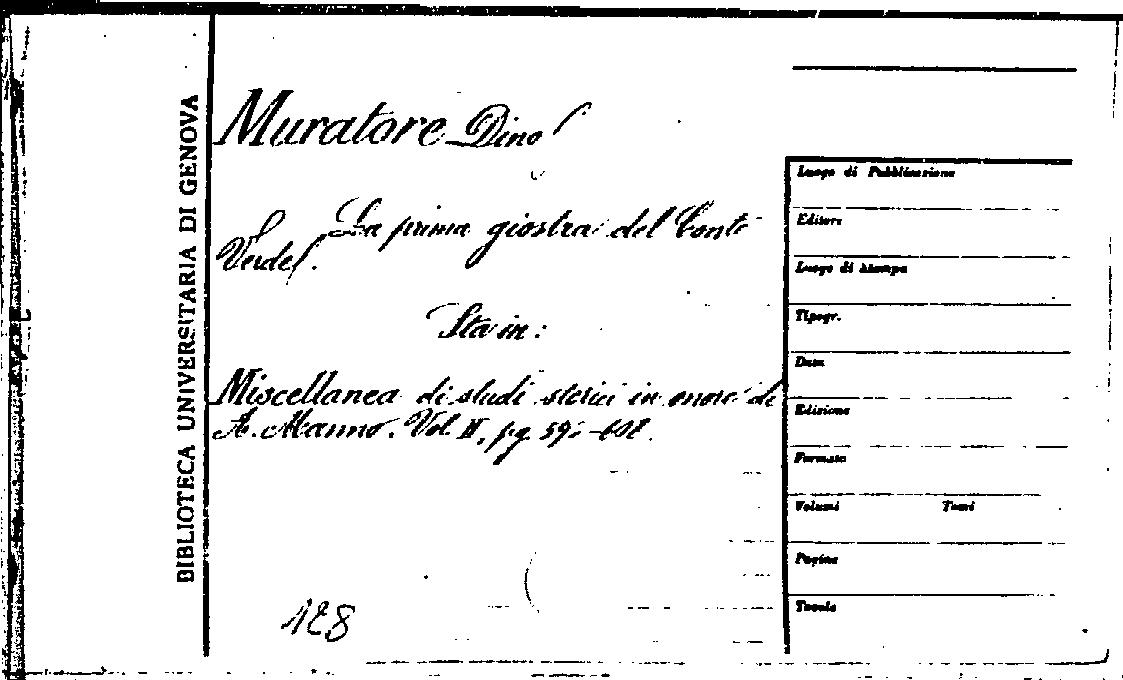 BIBLIOTECA UNIVERSITARIA DI GENOVA
Muratore Dino
La prima giostra del Conte
Verde.
Sta in:
Miscellanea di studi storici in onore di
A. Manno. Vol. II, pg.
128
Luogo di Pubblicazione
Editore
Luogo di stampa
Tipogr.
Data
Edizione
Formato
Volumi Tomi
Pagine
Tavole